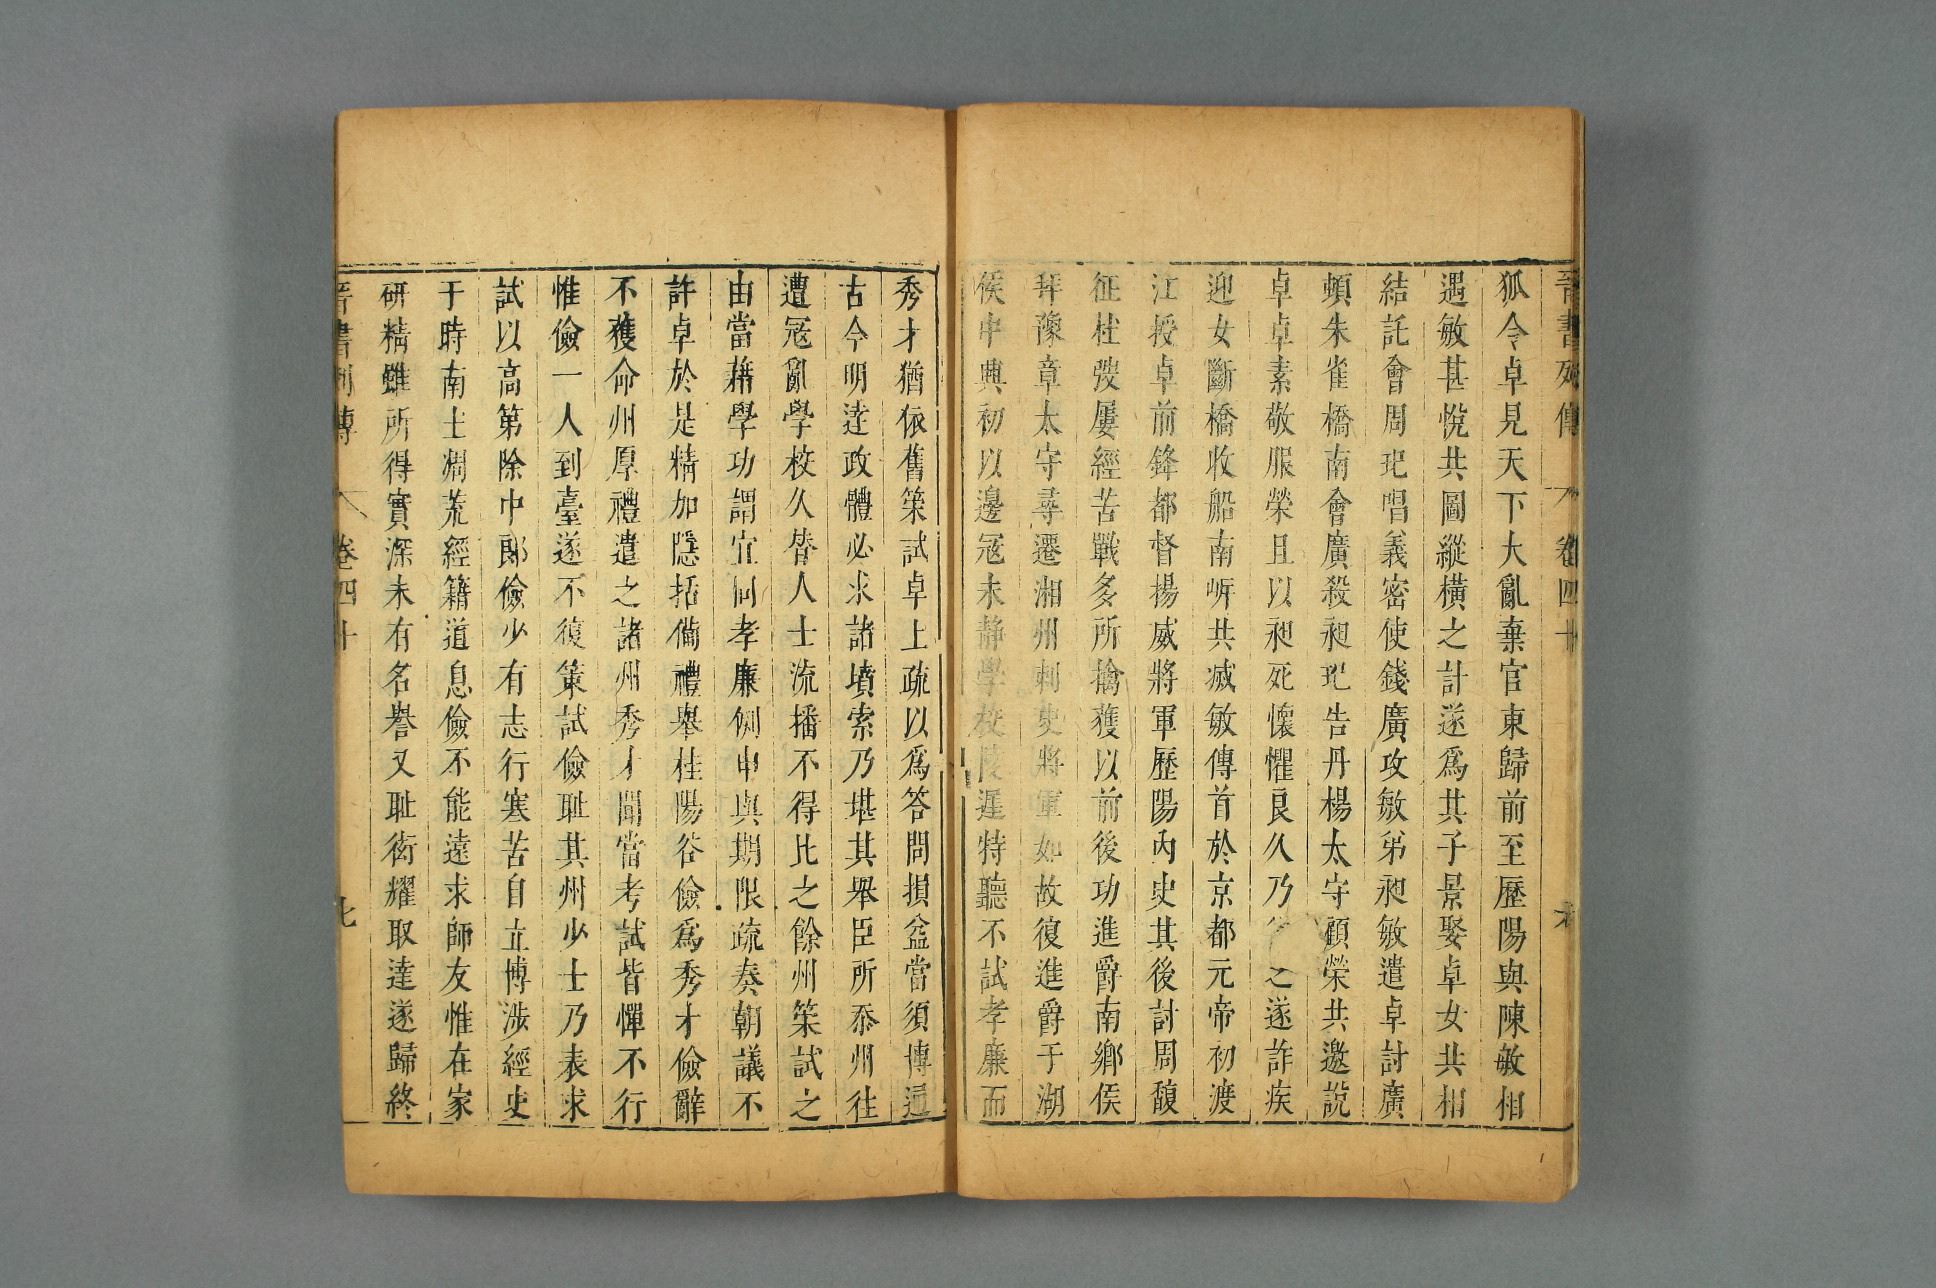 晉書列傳 卷四十
狐令卓見天下大亂棄官東歸前至歷陽與陳敏相
遇敏甚悅共圖縱橫之計遂爲其子景娶卓女共相
結託會周玘唱義密使錢廣攻敏弟昶敏遣卓討廣
頓朱雀橋南會廣殺昶玘告丹楊太守顧榮共邀說
卓卓素敬服榮且以昶死懷懼良久乃之遂詐疾
迎女斷橋收船南岍共滅敏傳首於京都元帝初渡
江授卓前鋒都督揚威將軍歷陽內史其後討周馥
征杜弢屢經苦戰多所擒獲以前後功進爵南鄉侯
拜豫章太守尋遷湘州刺史將軍如故復進爵于湖
侯中興初以邊寇未靜學校陵遲特聽不試孝廉而
秀才猶依舊策試卓上疏以爲答問損益當須博通
古今明達政體必求諸墳索乃堪其舉臣所忝州往
遭寇亂學校久替人士流播不得比之餘州策試之
由當藉學功謂宜同孝廉例申與期限疏奏朝議不
許卓於是精加隱括備禮舉桂陽谷儉爲秀才儉辭
不獲命州厚禮遣之諸州秀才聞當考試皆憚不行
惟儉一人到臺遂不復策試儉恥其州少士乃表求
試以高第除中郎儉少有志行寒苦自立博涉經史
于時南土凋荒經籍道息儉不能遠求師友惟在家
研精雖所得實深未有名譽又恥衒耀取達遂歸終
晉書列傳 卷四十 七